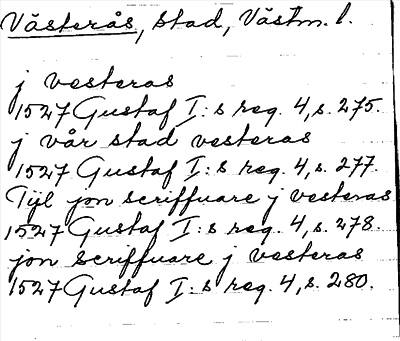 Västerås, stad, Västm. l.
j vesteras
1527 Gustaf I:s reg. 4, s. 275.
j vår stad vesteras
1527 Gustaf I:s reg. 4, s. 277.
Tijl jon scriffuare j vesteras
1527 Gustaf I:s reg. 4, s. 278.
jon scriffuare j vesteras
1527 Gustaf I:s reg. 4, s. 280.